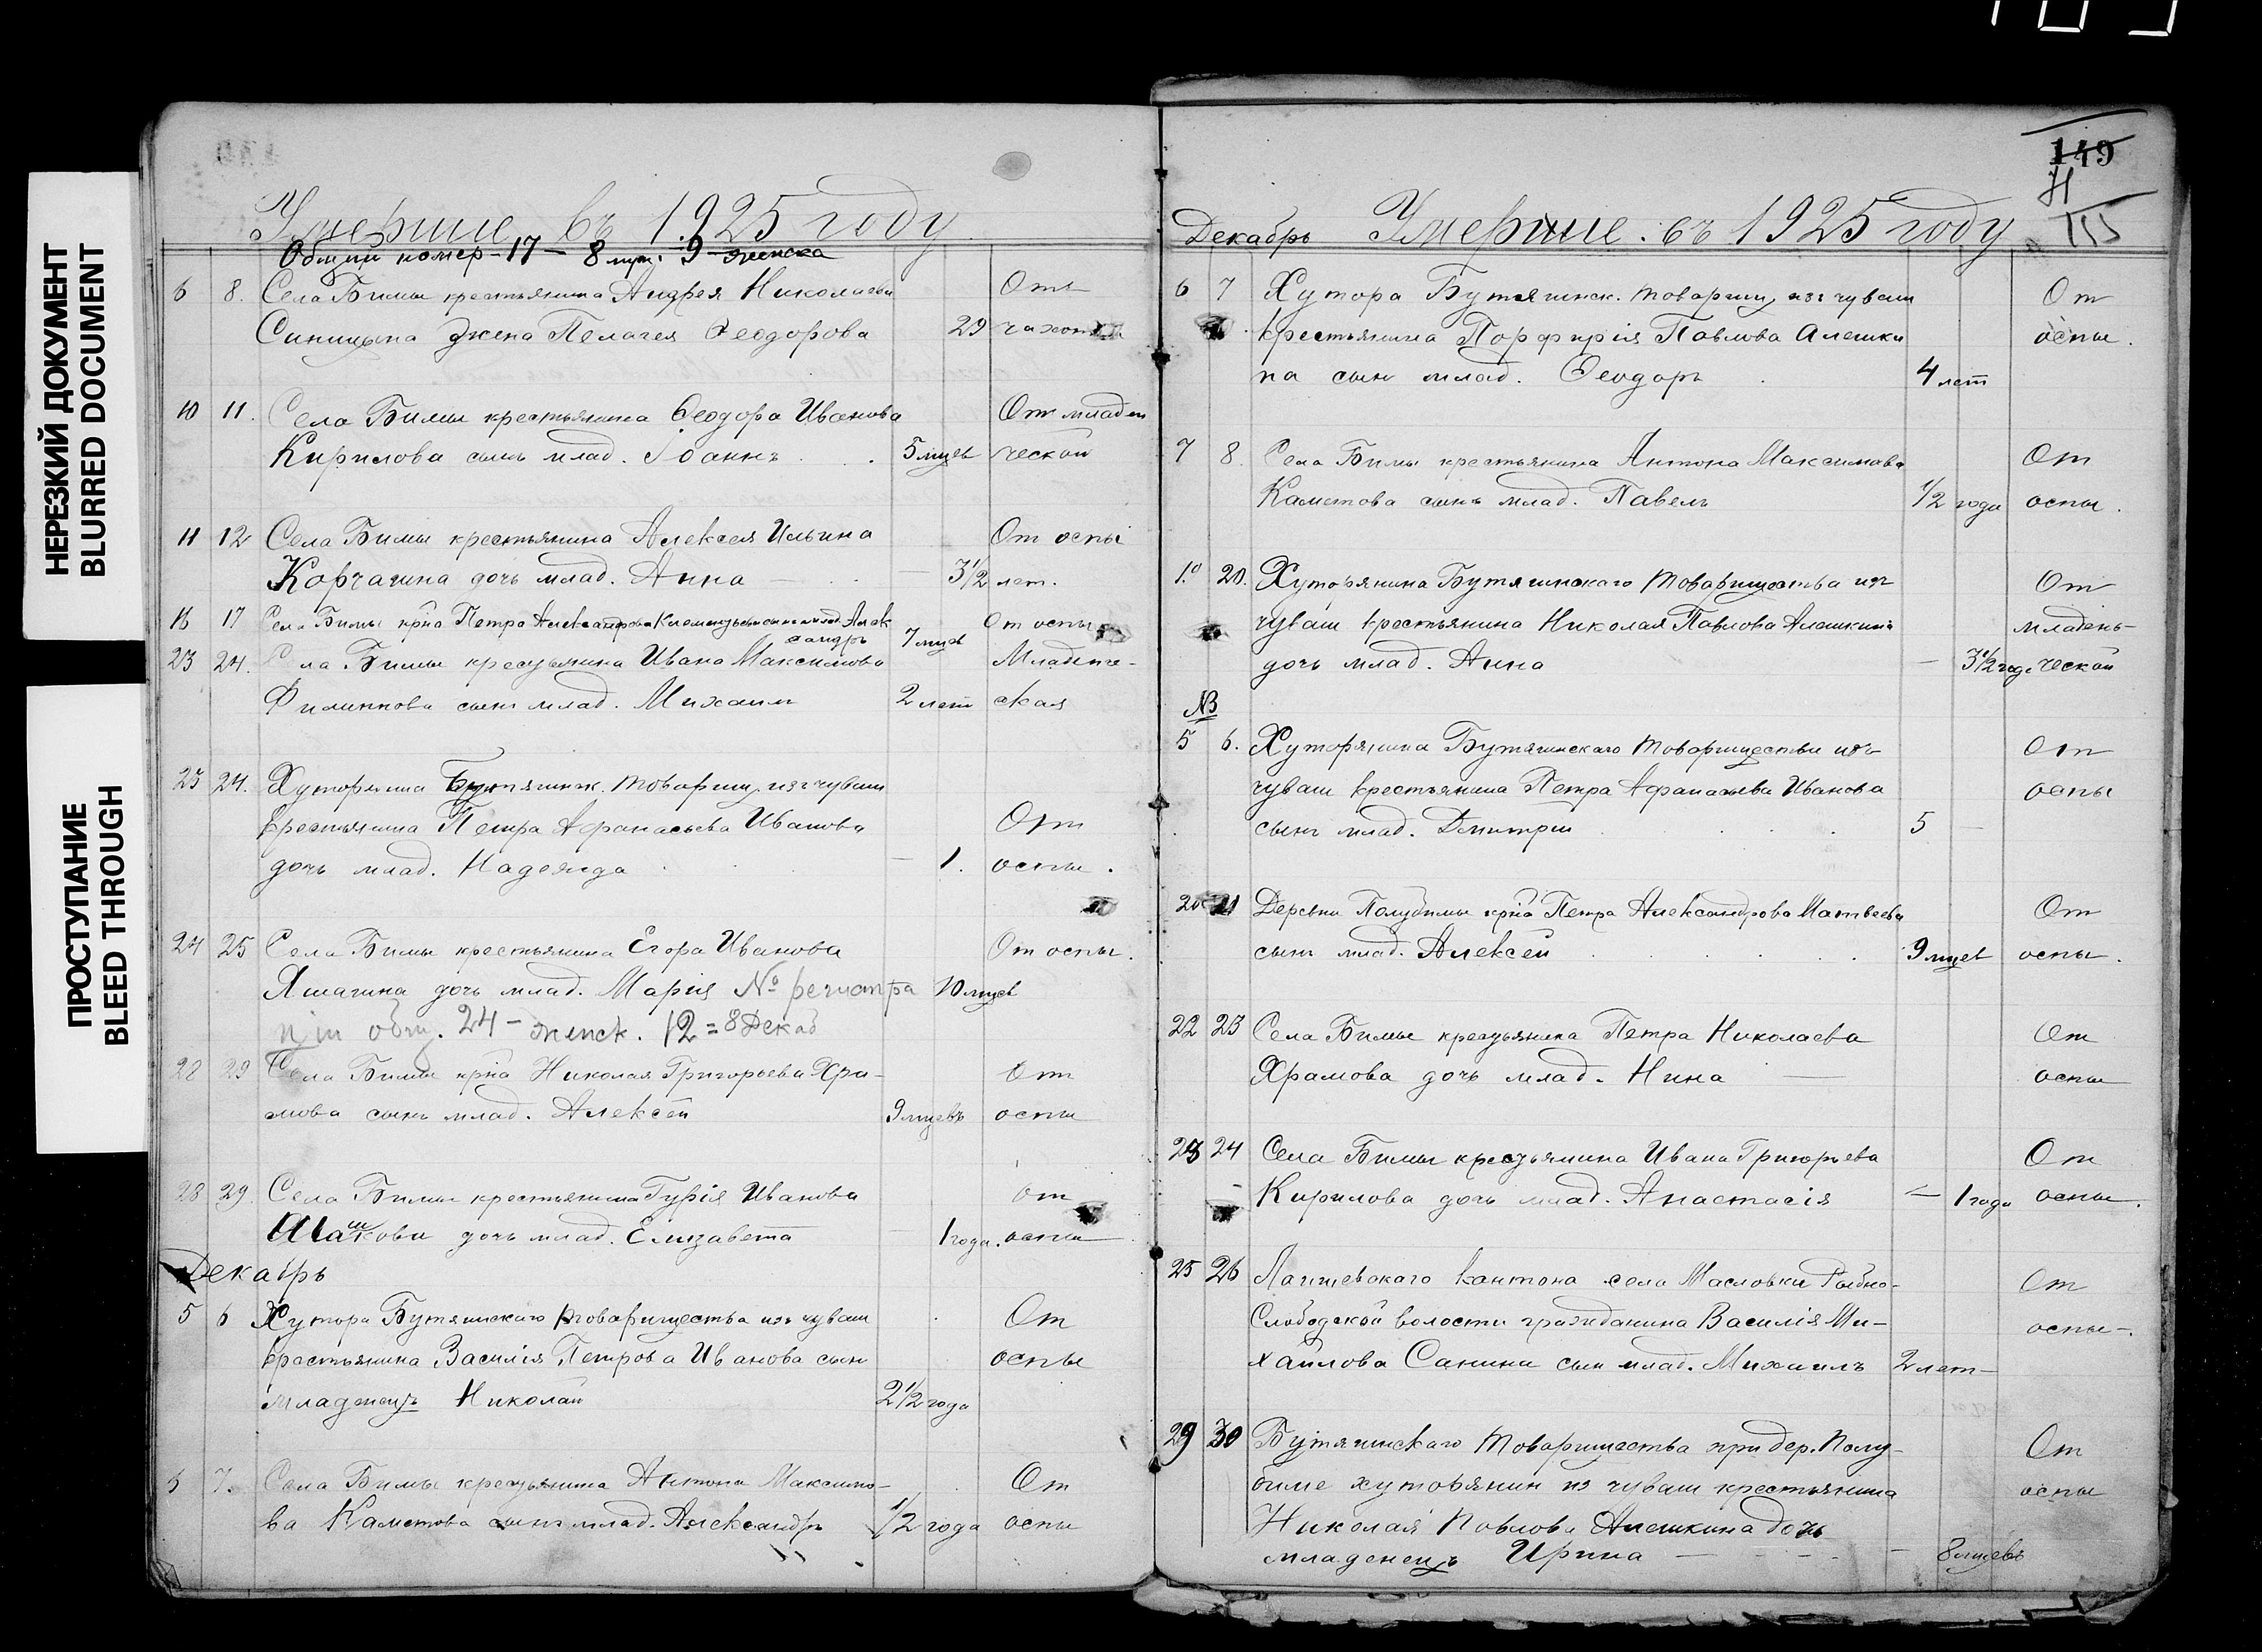 НЕРЕЗКИЙ ДОКУМЕНТ
BLURRED DOCUMENT
ПРОСТУПАНИЕ
BLEED THROUGH
Умершие въ 1925 году
Общий номер - 17 - 8 муж. 9 женска
6 8. Села Бимы крестьянина Андрея Николаева От
Синицына жена Пелагея Феодорова 29 чахотки
10 11. Села Бимы крестьянина Феодора Иванова От младен
Кирилова сынъ млад. Іоаннъ 5 мцев ческой
11 12 Села Бимы крестьянина Алексея Ильина От оспы
Корчагина дочь млад. Анна — 3½ лет.
16 17 Села Бимы крна Петра Александрова сынъ млад. Алек От оспы
сандръ 7 мцев
23 24. Села Бимы крестьянина Ивана Максимова Младенче-
Филиппова сынъ млад. Михаилъ 2 лет ская
23 24. Хуторянина Бутягинск. товарищ. изъ чуваш
крестьянина Петра Афанасьева Иванова От
дочь млад. Надежда — 1. оспы.
24 25 Села Бимы крестьянина Егора Иванова От оспы.
Яшагина дочь млад. Мария № регистра 10 мцев
ціи общ. 24 - женск. 12 = 8 Декаб
28 29 Села Бимы крна Николая Григорьева Хра- От
мова сынъ млад. Алексей 9 мцевъ оспы
28 29. Села Бимы крестьянина Гурія Иванова от
Шашкова дочь млад. Елизавета — 1 года. оспы
Декабрь
5 6 Хутора Бутягинскаго товарищества изъ чуваш От
крестьянина Василія Петрова Иванова сын оспы
младенецъ Николай 2½ года
6 7. Села Бимы крестьянина Антона Максимо- От
ва Каметова сынъ млад. Александръ ½ года оспы
149
Н
Декабрь Умершие въ 1925 году
6 7 Хутора Бутягинск. товарищ. изъ чуваш От
крестьянина Порфирія Павлова Алешки оспы.
на сын млад. Феодоръ 4 лет
7 8. Села Бимы крестьянина Антона Максимова От
Каметова сынъ млад. Павелъ ½ года оспы.
20. Хуторянина Бутягинскаго товарищества изъ От
чуваш крестьянина Николая Павлова Алешкина младень-
дочь млад. Анна — 3½ год. ческой
NB
5 6. Хуторянина Бутягинскаго товарищества изъ От
чуваш крестьянина Петра Афанасьева Иванова оспы
сынъ млад. Дмитрий 5 —
20 21 Деревни Полубимы крна Петра Александрова Матвеева От
сынъ млад. Алексей 9 мцев оспы.
22 23 Села Бимы крестьянина Петра Николаева От
Храмова дочь млад. Нина — оспы
23 24 Села Бимы крестьянина Ивана Григорьева От
Кирилова дочь млад. Анастасія — 1 года оспы.
25 26 Лаишевскаго кантона села Масловки Рыбно- От
Слободской волости гражданина Василія Ми- оспы.
хайлова Санина сын млад. Михаилъ 2 лет —
29 30 Бутягинскаго товарищества при дер. Полу- От
биме хуторянин из чуваш крестьянина оспы
Николая Повлова Алешкина дочь
младенецъ Ирина — 8 мцевъ